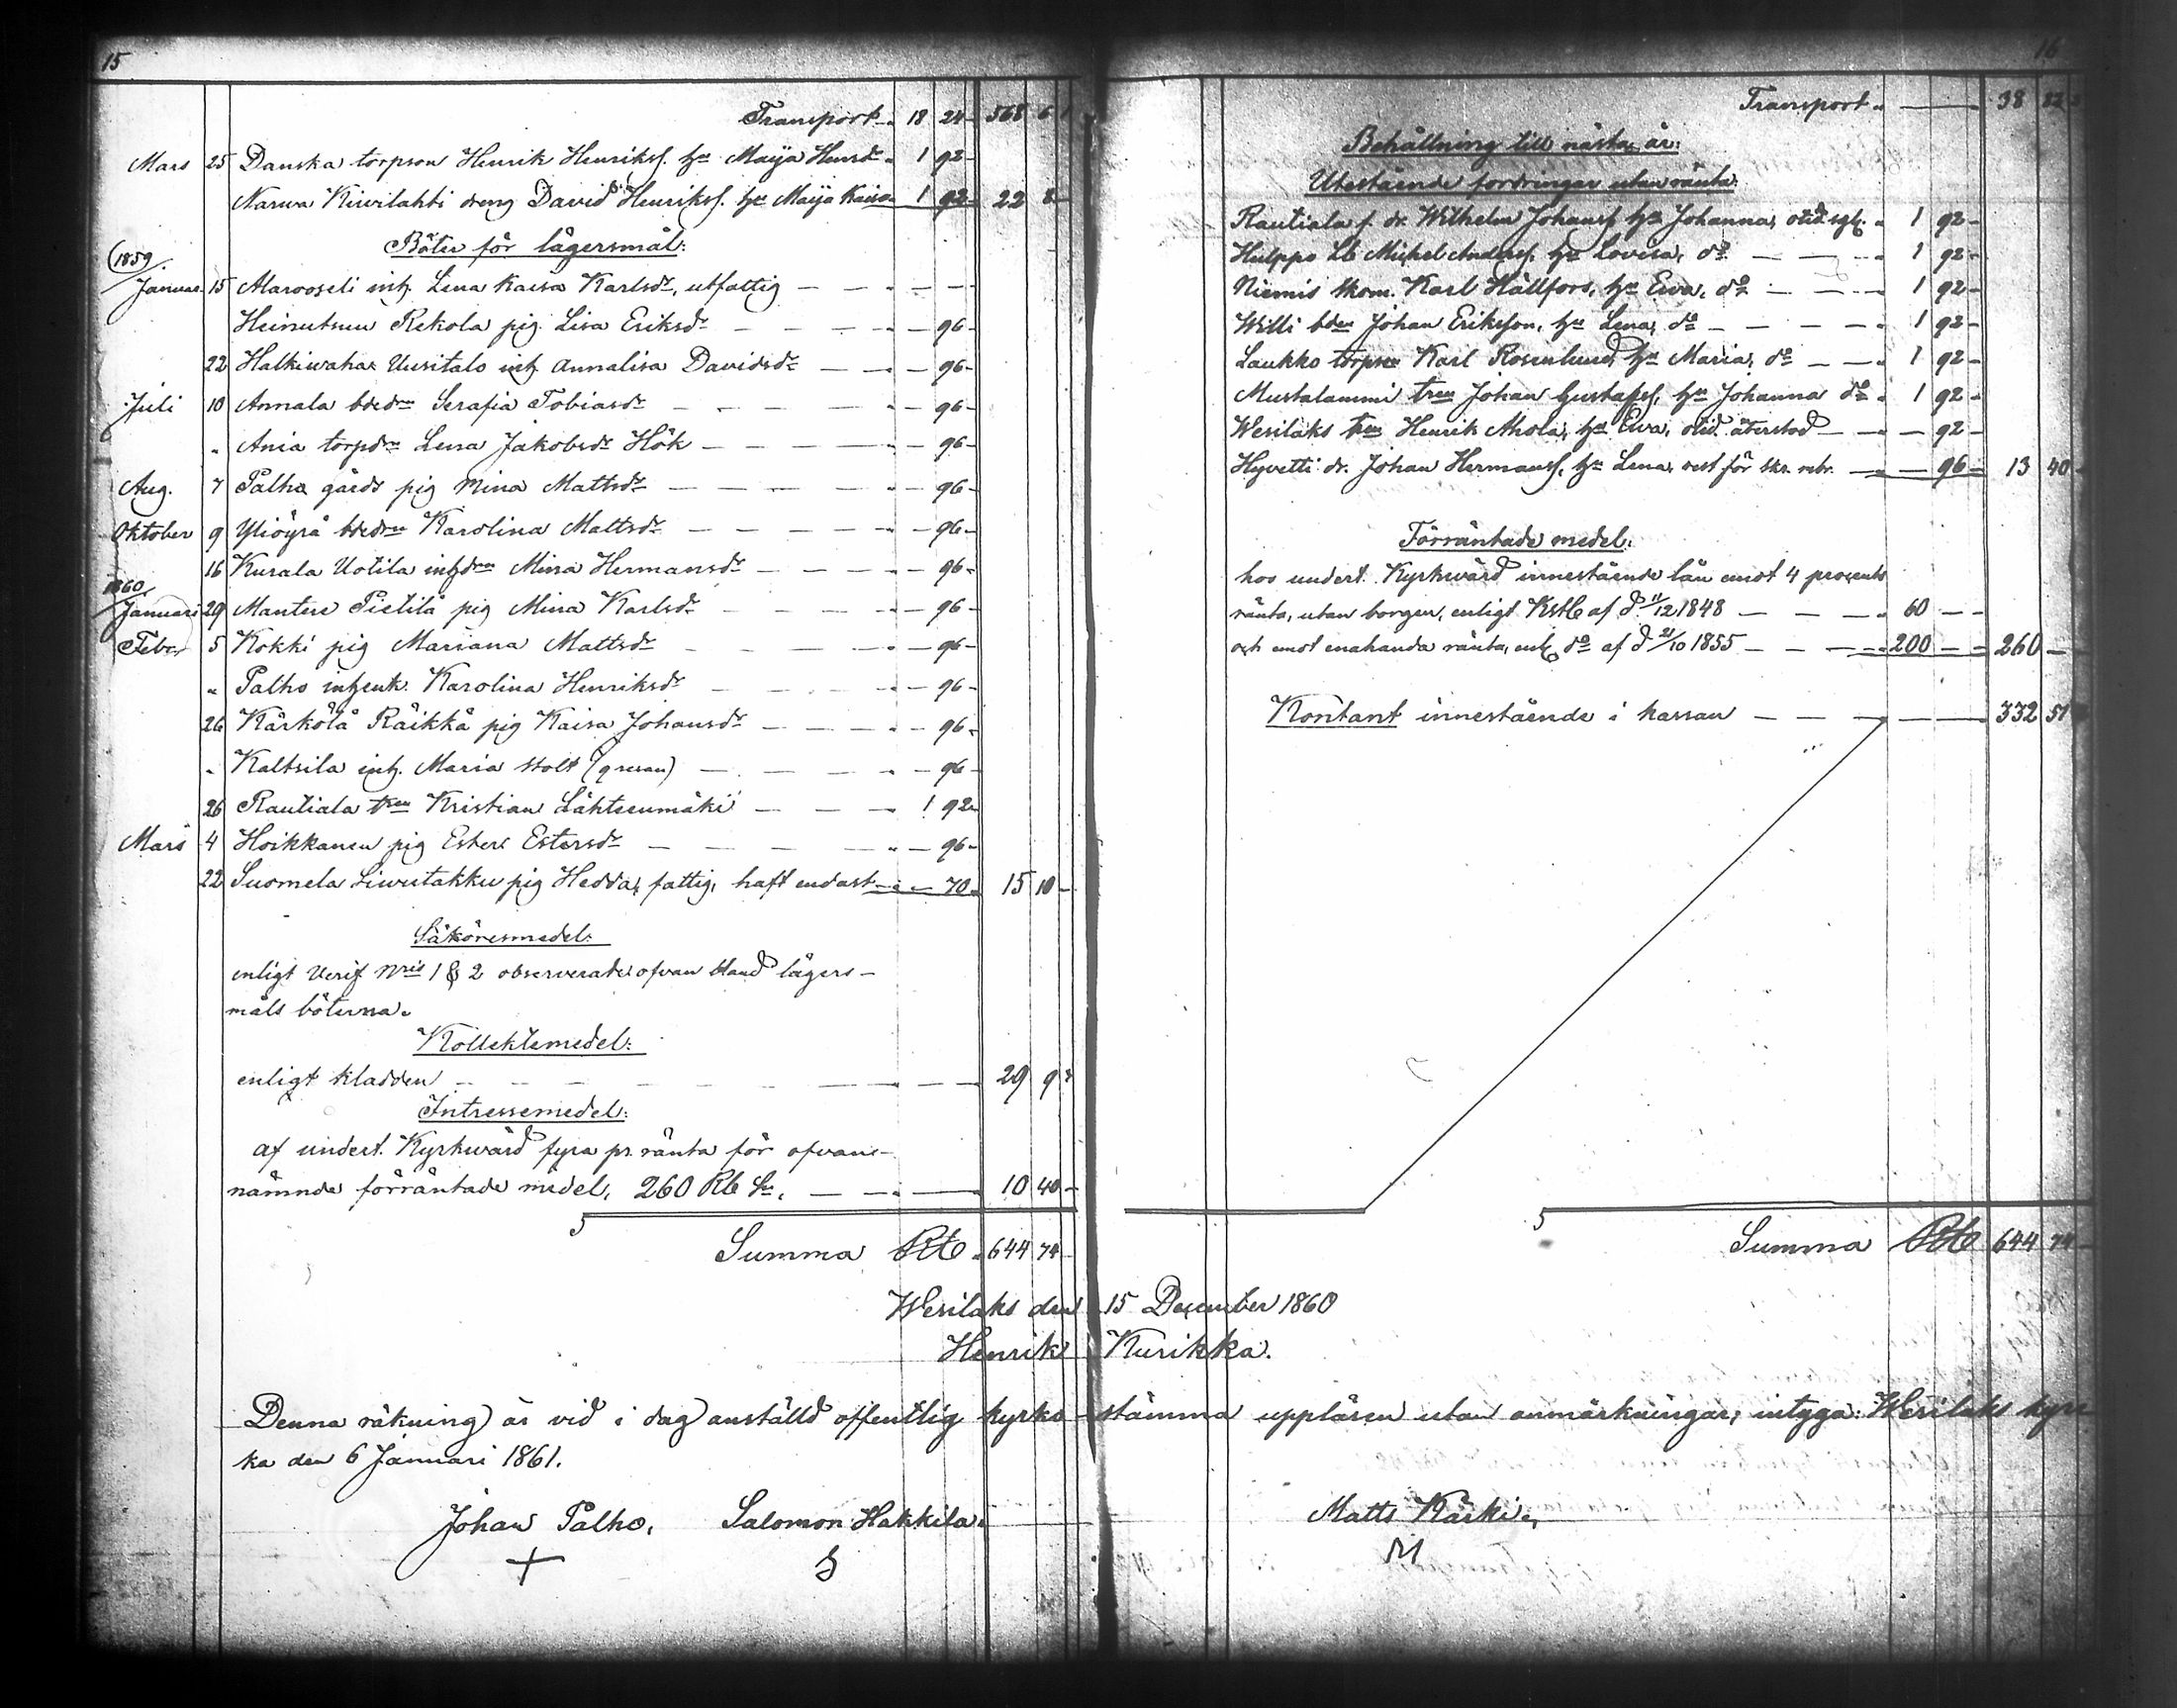 15
Transport 18 24 568 6
Mars 25 Danska torpson Henrik Henrikss. hu Maija Henrdr 1 92
Narwa Kiwilahti dreng David Henrikss. hu Maija Kaisa 1 92 22 8
Böter för lägersmål:
(1859)
Januar. 15 inh. Lena Kaisa Karlsdr, utfattig
Heinutsuu Rekola pig. Lisa Eriksdr 96
22 Halkiwaha Uusitalo inh. Annalisa Davidsdr 96
Juli 10 Annala Serafia Tobiasdr 96
" Ania Lena Jakobsdr Hök 96
Aug. 7 Palho gårds pig Mina Mattsdr 96
Oktober 9 Yliöyrä Karolina Mattsdr 96
16 Kurala Uotila Mina Hermansdr 96
1860
Januari 29 Mantere Pietilä pig Mina Karlsdr 96
Febr 5 Kokki pig Mariana Mattsdr 96
" Palho Karolina Henriksdr 96
26 Kärkölä Räikkä pig Kaisa Johansdr 96
" Kaltsila inh. Maria Stolt 96
26 Rautiala Kristian Lähteenmäki 1 92
Mars 4 Hoikkanen pig Ester Estersdr 96
22 Suomela Liwutakku pig Hedda, fattig, haft endast 70 15 10
Säköresmedel:
enligt Verif Nris 1 & 2 observerade ofvan bland lägers-
måls böterna.
Kollektemedel:
enligt kladden 29 9
Intressemedel:
af undert. Kyrkwärd fyra pr. ränta för ofvan-
nämnde förräntade medel, 260 Rb Sr. 10 40
Summa Rb 644 74
16
Transport 38
Behållning till nästa år:
Utestående fordringar utan ränta:
Rautiala f. dr. Wilhelm Johanss hu Johanna, 1 92
Hulppo Michel Anderss. hu Lovisa, do 1 92
Niemis skom. Karl Hällfors, hu Ewa, do 1 92
Willi Johan Eriksson, hu Lena, do 1 92
Laukko torpson Karl Rosenlund, hu Maria, do 1 92
Mustalammi Johan Gustafss, hu Johanna do 1 92
Wesilaks Henrik Ahola, hu Ewa, återstod 92
Hyvetti dr. Johan Hermanss, hu Lena, rest för 96 13 40
Förräntade medel:
hos undert. Kyrkwärd innestående lån emot 4 procents
ränta, utan borgen, enligt af d 11/12 1848 60
och emot enahanda ränta, enl. do af d 21/10 1855 200 260
Kontant innestående i kassan 332 51
Summa Rb 644 74
Wesilaks den 15 December 1860
Henrik Kurikka.
Denna räkning är vid i dag anställd offentlig kyrko-stämma uppläsen utan anmärkningar, intyga: Wesilaks kyr
ka den 6 Januari 1861.
Johan Palho. Salomon Hakkila. Matts Kärki.